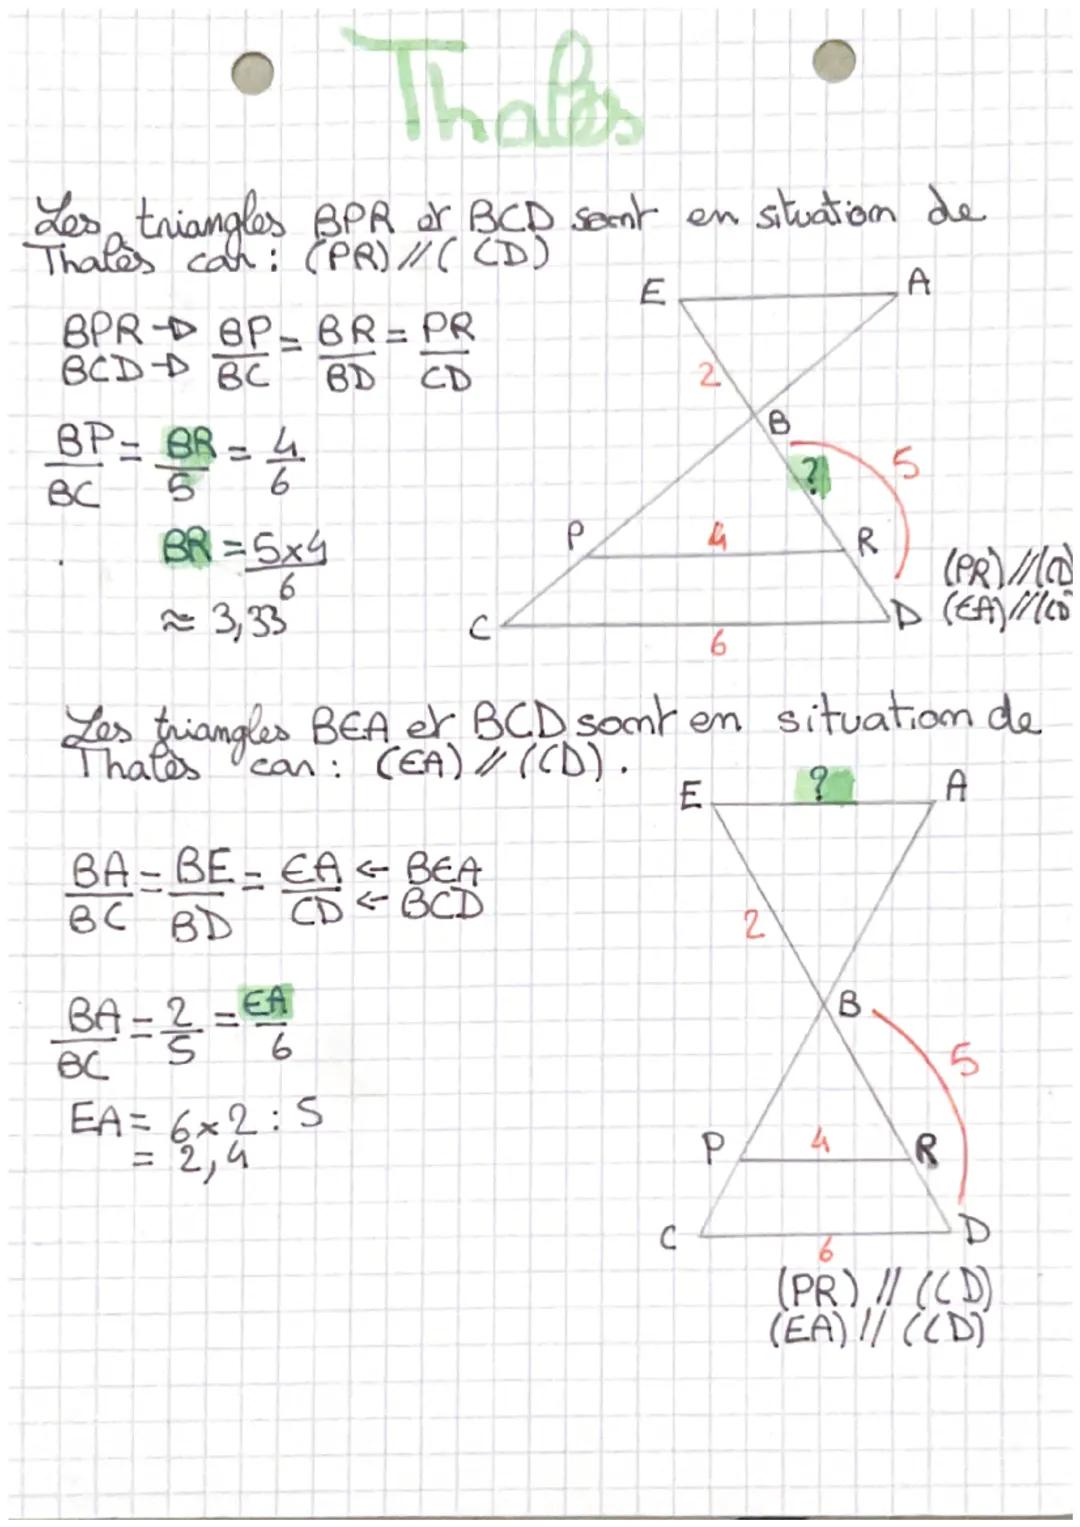 Thalès
Les triangles BPR et BCD sont en situation de
Thalès car : (PR) // (CD)
E A
BPR → BP = BR = PR
BCD → BC BD CD
2
B
BP = BR = 4
BC 5 6
? 5
BR = 5×4
6
≈ 3,33
P 4 R
(PR) // (CD
C D (EA) // (CD
6
Les triangles BEA et BCD sont en situation de
Thalès car : (EA) // (CD).
E ? A
BA = BE = EA ← BEA
BC BD CD ← BCD
2
BA = 2 = EA
BC 5 6
B
5
EA = 6×2 : 5
= 2,4
P 4 R
C D
6
(PR) // (CD)
(EA) // (CD)